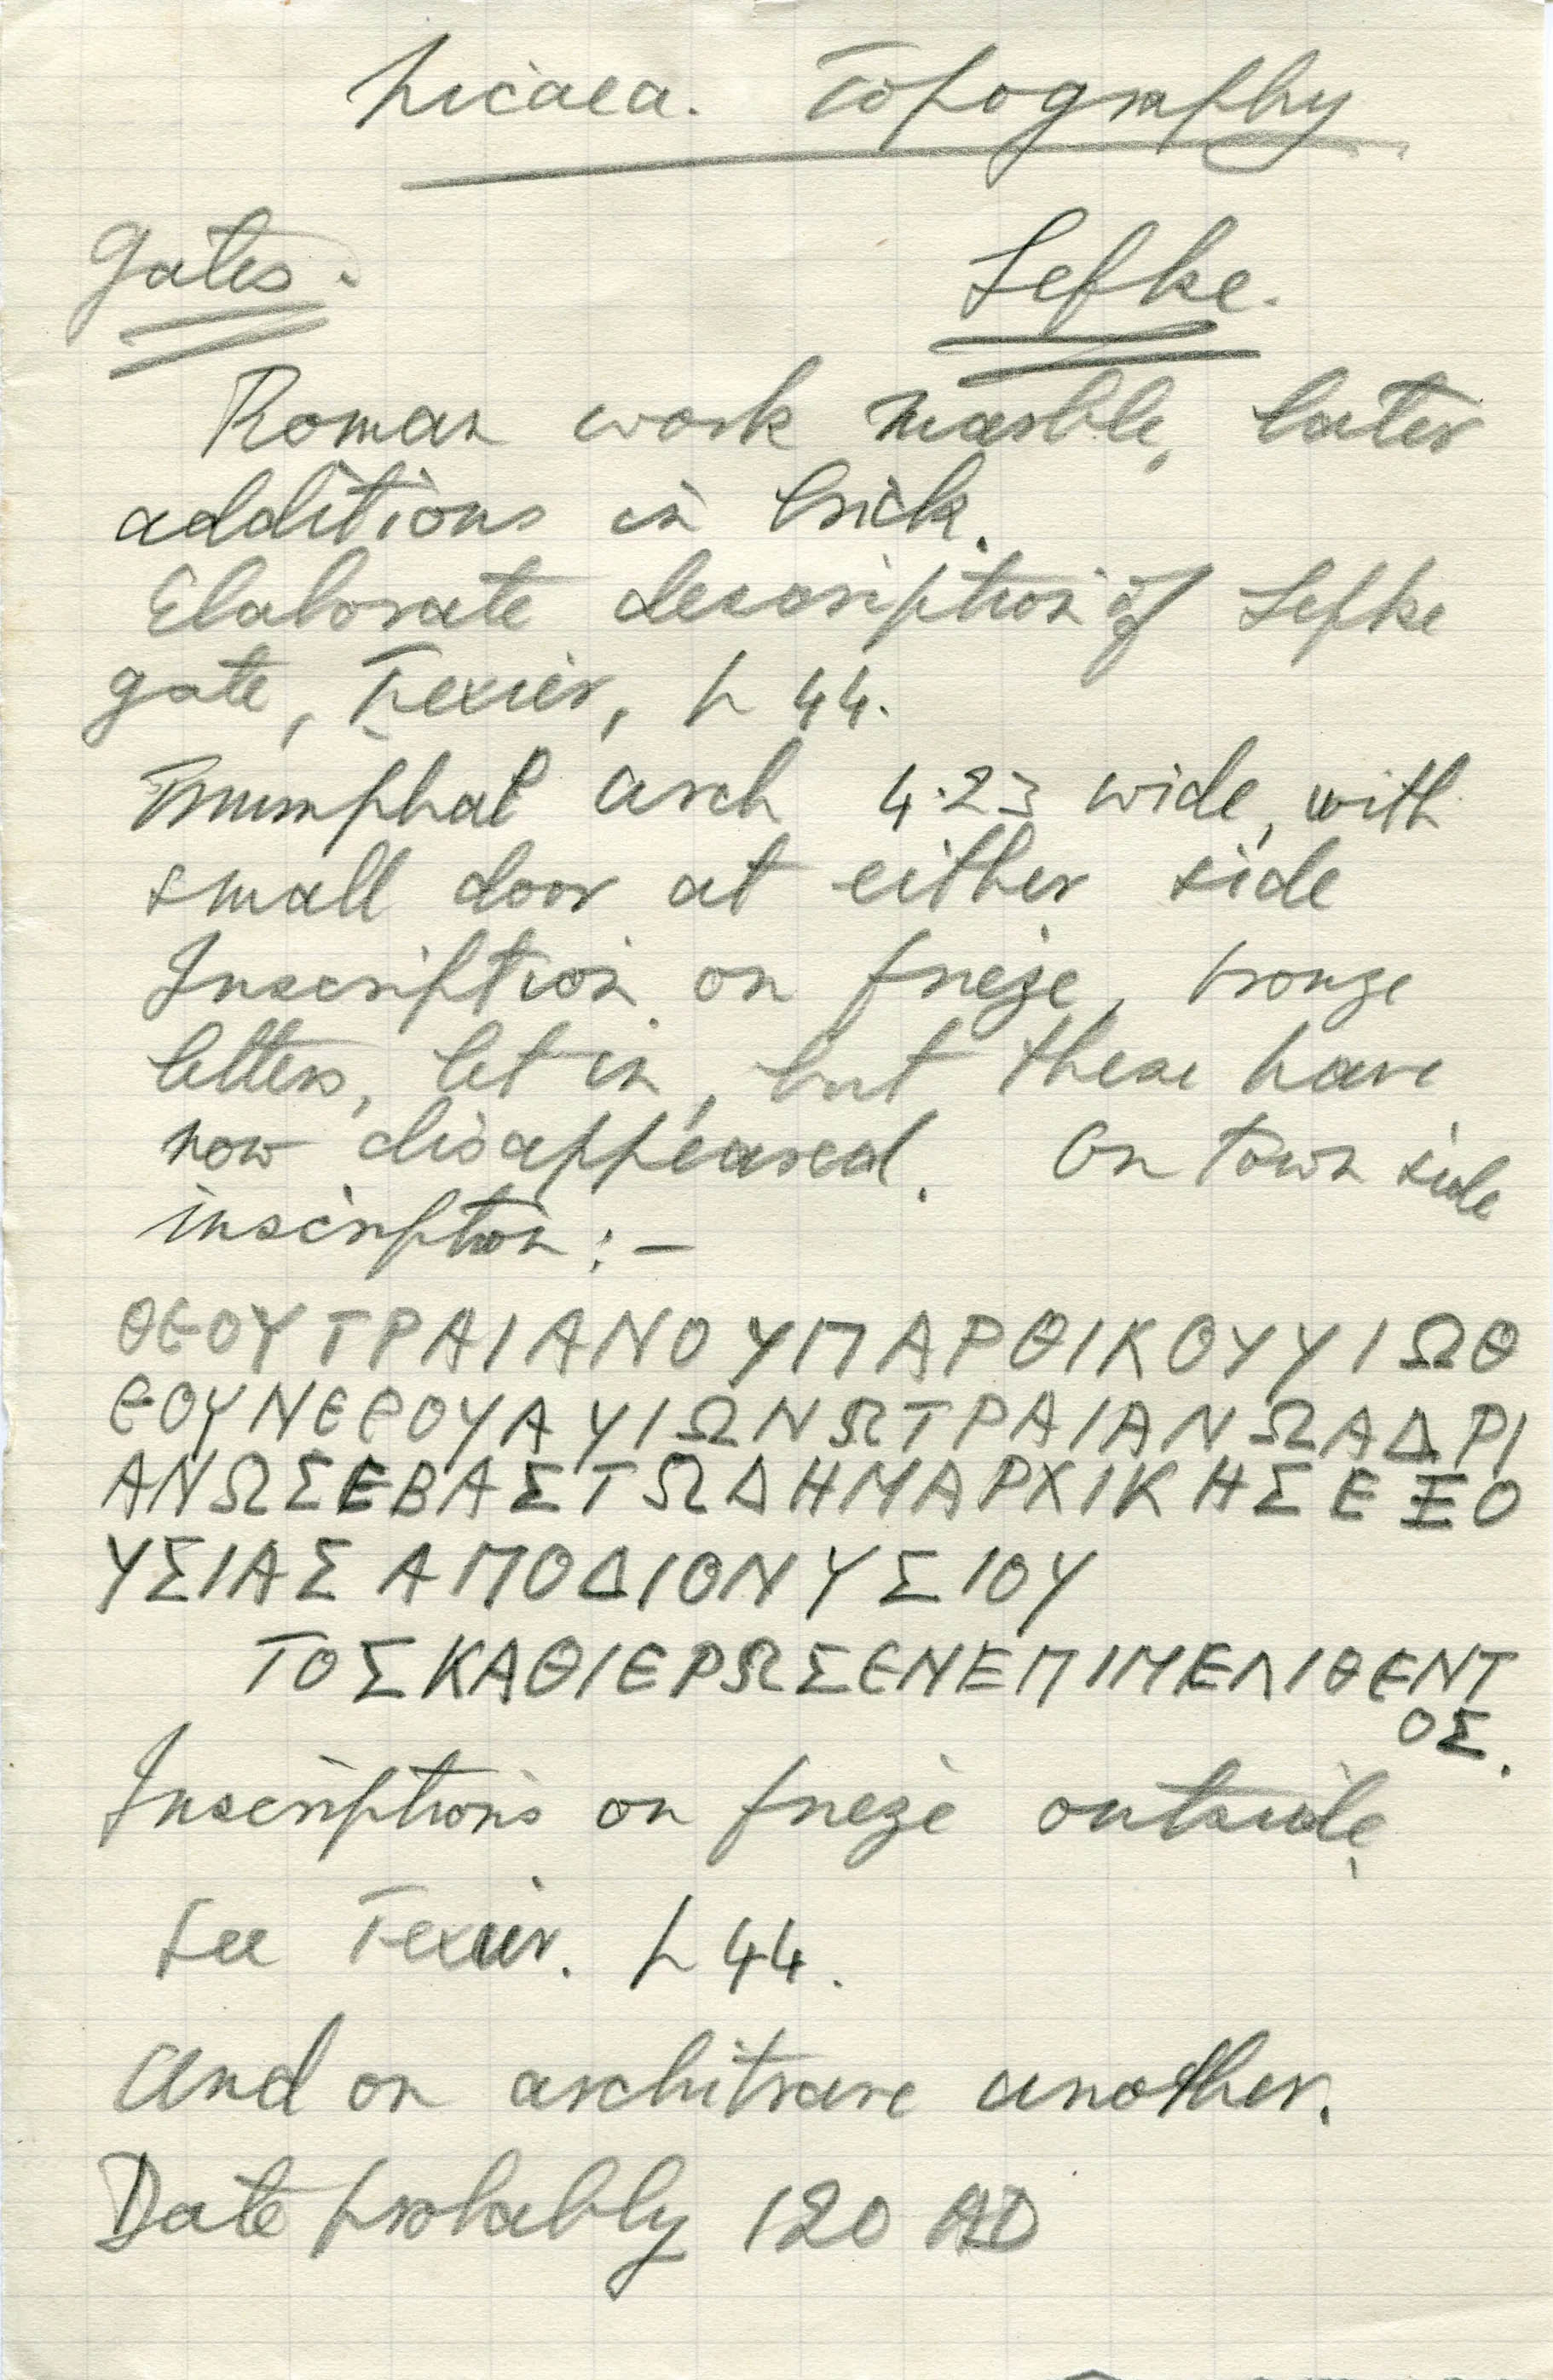 Nicaea. Topography
Gates. Lefke.
Roman work marble, later
additions in brick.
Elaborate description of Lefke
gate, Texier, p 44.
Triumphal arch 4.23 wide, with
small door at either side
Inscription on frieze, bronze
letters, let in, but these have
now disappeared. On town side
inscription :—
ΘΕΟΥΤΡΑΙΑΝΟΥΠΑΡΘΙΚΟΥΥΙΩΘ
ΕΟΥΝΕΡΟΥΑΥΙΩΝΩΤΡΑΙΑΝΩΑΔΡΙ
ΑΝΩΣΕΒΑΣΤΩΔΗΜΑΡΧΙΚΗΣΕΞΟ
ΥΣΙΑΣΑΠΟΔΙΟΝΥΣΙΟΥ
ΤΟΣΚΑΘΙΕΡΩΣΕΝΕΠΙΜΕΛΙΘΕΝΤ
ΟΣ.
Inscriptions on frieze outside,
See Texier. p 44.
And on architrave another.
Date probably 120 AD